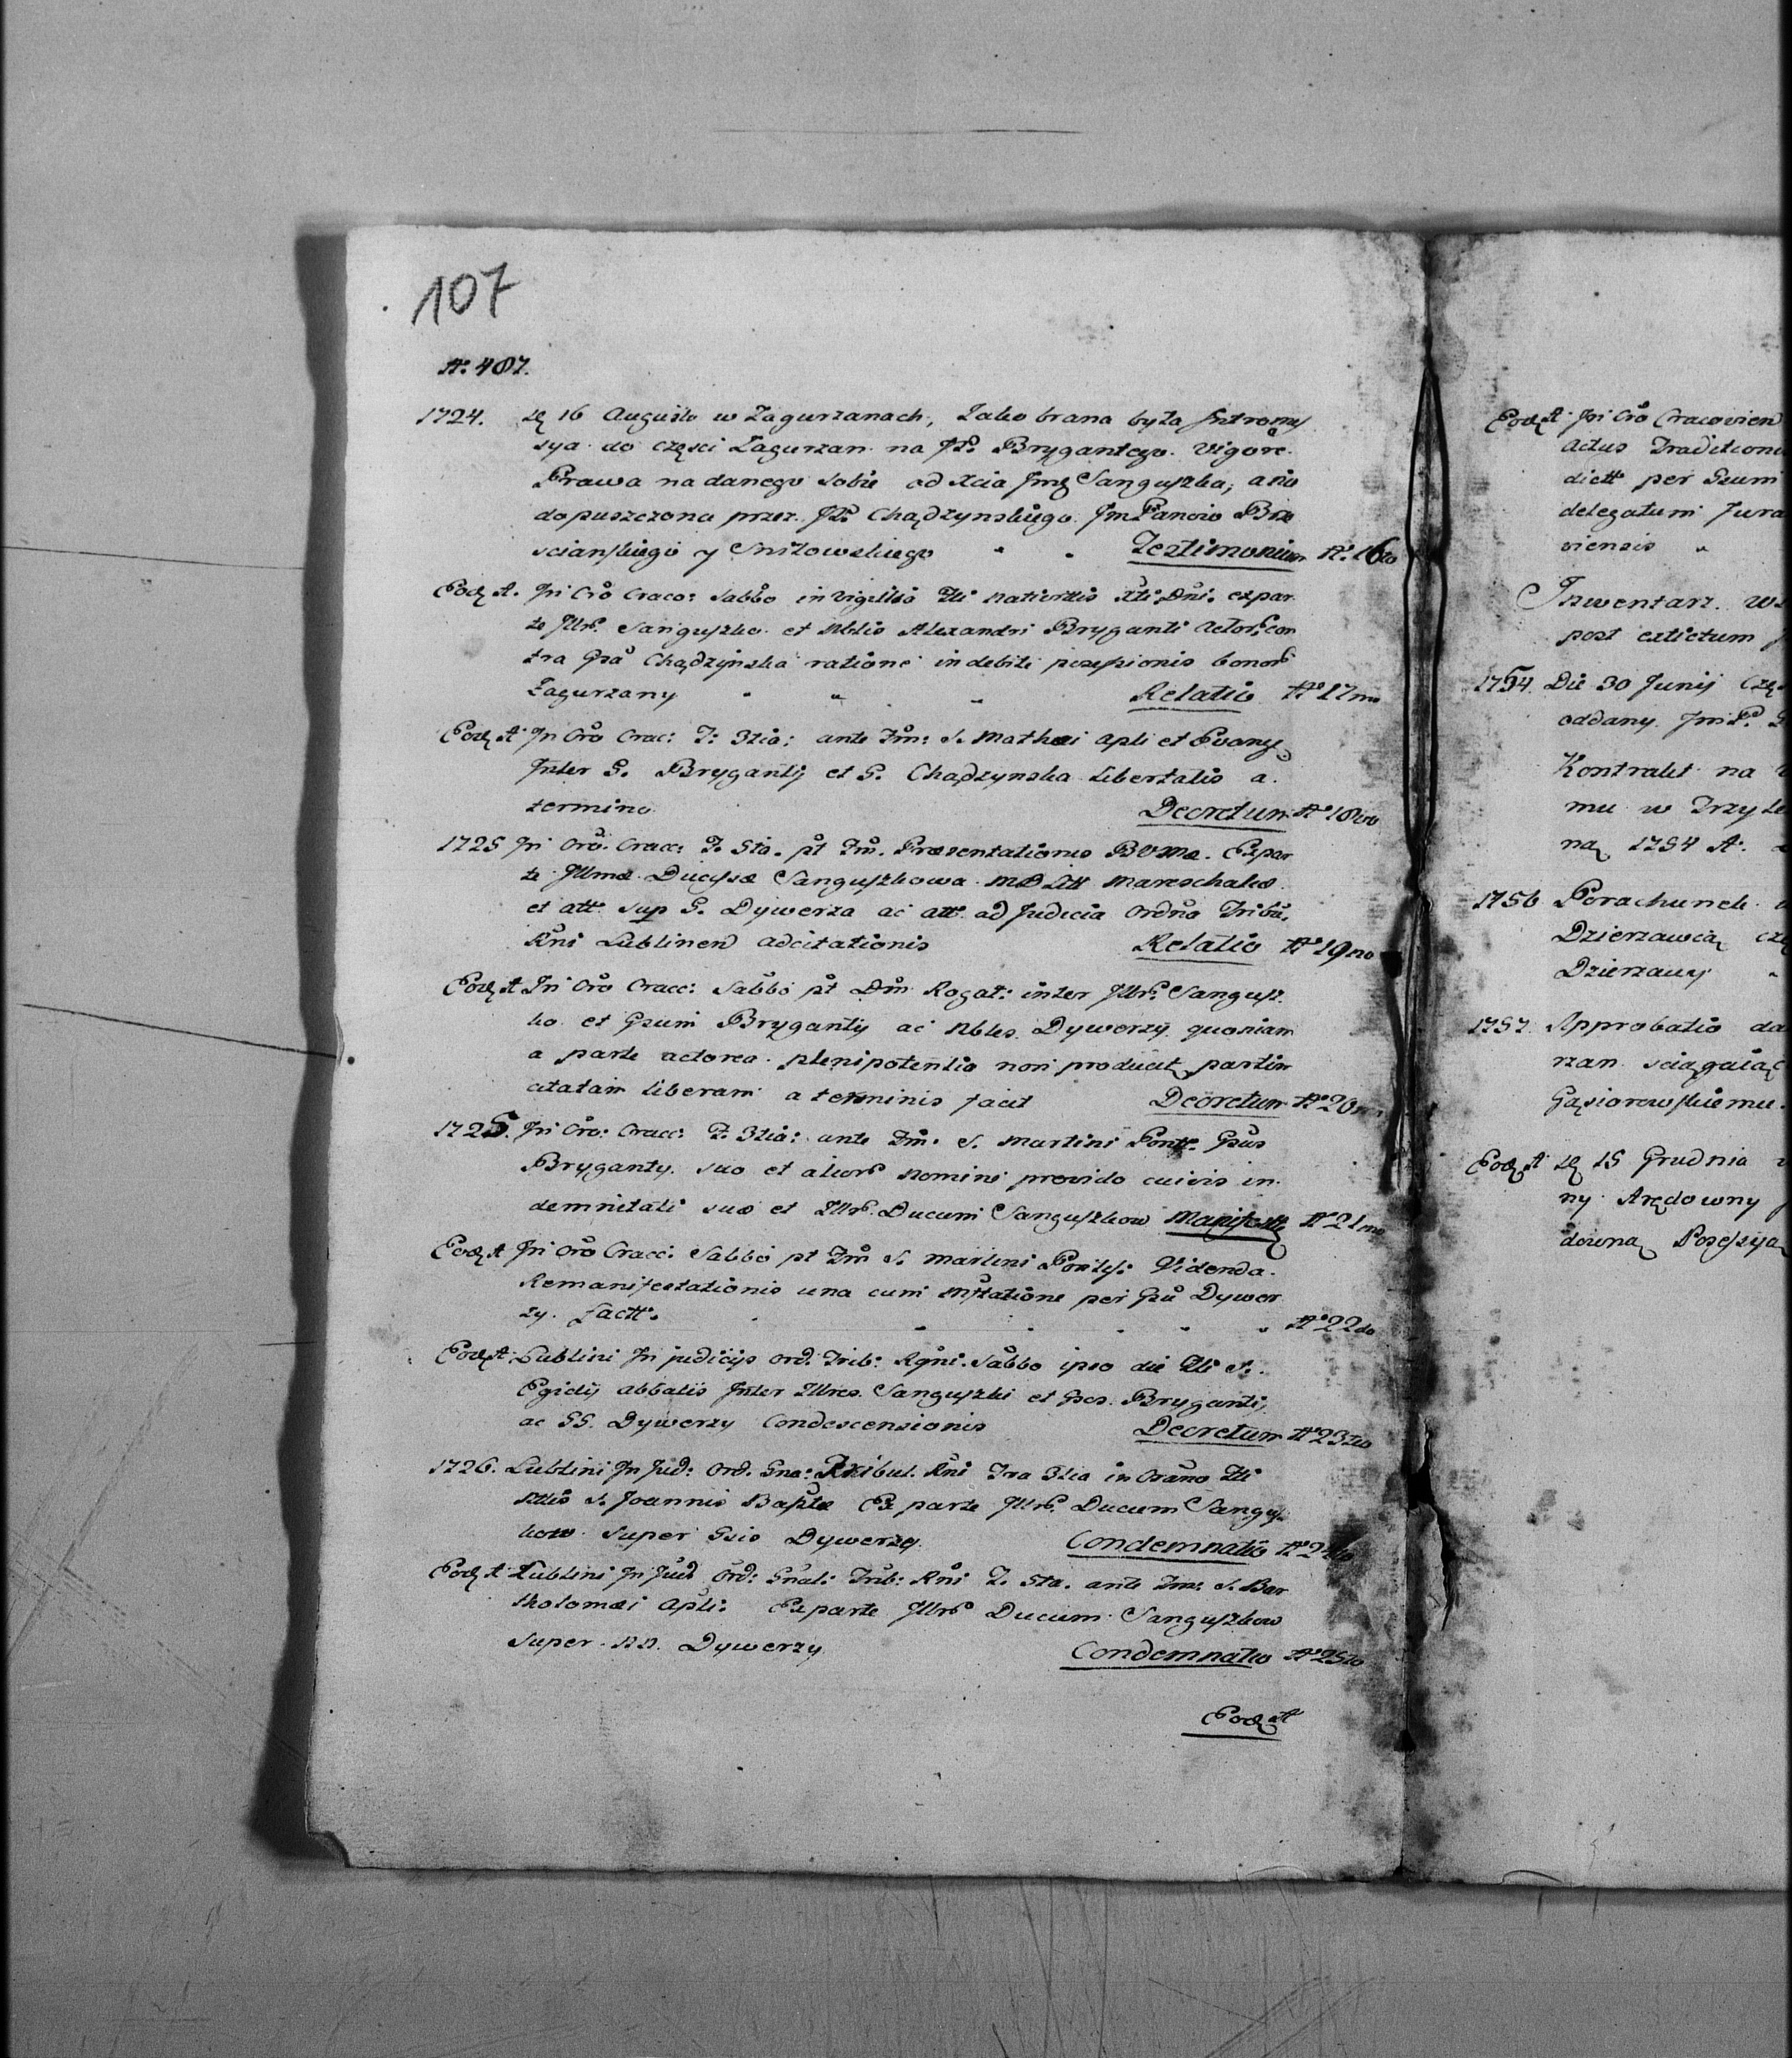 107
N° 487.
1724. D. 16 Augusti w Zagurzanach, Jako brana była Intromis
sya do częsci Zagurzan na JP. Brygantego. Vigore
Prawa nadanego sobie od Xcia Jmę Sanguszka, a nie
dopuszczona przez JP. Chądzynskiego JmPanow Brze
scianskiego y Snitowskiego " " Testimonium N° 16to
Eod. A. In Cro Craco: Sabbo in Vigilia Fti Nativittis Xti Dni. expar
te Illr. Sanguszko et Nblis Alexandri Bryganti Actor. con
tra Gsa Chądzynska ratione indebiti possessionis bonor
Zagurzany " " " Relatio N° 17mo
Eod. A. In Cro Crac: F: 3tia: ante Fm: S. Mathæi Apli et Evang
Inter G. Brygantÿ et G. Chądzynska Libertatis a
termino Decretum N° 18vo
1725 In Cro. Cracc: F. 5ta. pt Fm. Præsentationis BVMæ. Expar
te Illmæ Ducissæ Sanguszkowa MD Litt Mareschalco
et att sup G. Dywerza ac att ad Judicia Ordna Tribu.
Rni Lublinen adcitationis Relatio N° 19no
Eod. A In Cro Cracc: Sabbo pt Dm Rogat: inter Illr. Sangusz
ko et Gsum Brygantÿ ac Nbles Dywerzÿ quoniam
a parte actorea plenipotentio non producit, partem
citatam liberam a terminis facit Decretum N° 20mo
1725. In Cro: Cracc: F. 3tia: ante Fm: S. Martini Pontt. Gsus
Bryganty suo et alior nomine provido cuivis in
demnitati suæ et Illr. Ducum Sanguszkow Manifestt N° 21mo
Eod. A In Cro Cracc: Sabbo pt Fm S. Martini Pontif: Videnda
Remanifestationis una cum Mfttatione per Gsu Dywer
zy factt. " " " " " N° 22do
Eod. A. Lublini In judicijs Ord. Trib: Rgni. Sabbo ipso die Fti S.
Egidÿ abbatis Inter Illres. Sanguszki et Gsos. Bryganti,
ac GG. Dywerzy Condescensionis Decretum N° 23tio
1726. Lublini In Jud: Ord. Gna: Tribul. Rni Fra 3tia in Crano Fti
Nttis S. Joannis Baptæ Ex parte Illr. Ducum Sangusz
kow Super Gsis Dywerzy Condemnatio N° 24to
Eod. A. Lublini In Jud Ord: Gnal: Trib: Rni F. 5ta. ante Fm: S. Bar
tholomæi Apli: Ex parte Illr. Ducum Sanguszkow
super NN. Dywerzy Condemnatio N° 25to
Eod. A
Eod. A. In Cro Cracovien
Actus Traditioni
dictt per Gsum
delegatum Jura
viensis "
Inwentarz
post extictum
1754. Die 30 Junij Czę
oddany JmP. G
Kontrakt na
mu w Trzyle
ną 1754 A.
1756 Porachunek
Dzierzawcią czę
Dzierzawy "
1757. Approbatio da
rzan sciągaiąc
Gąsiorowskiemu.
Eod. A D. 15 Grudnia
ny Arędowny
downą Possessyą